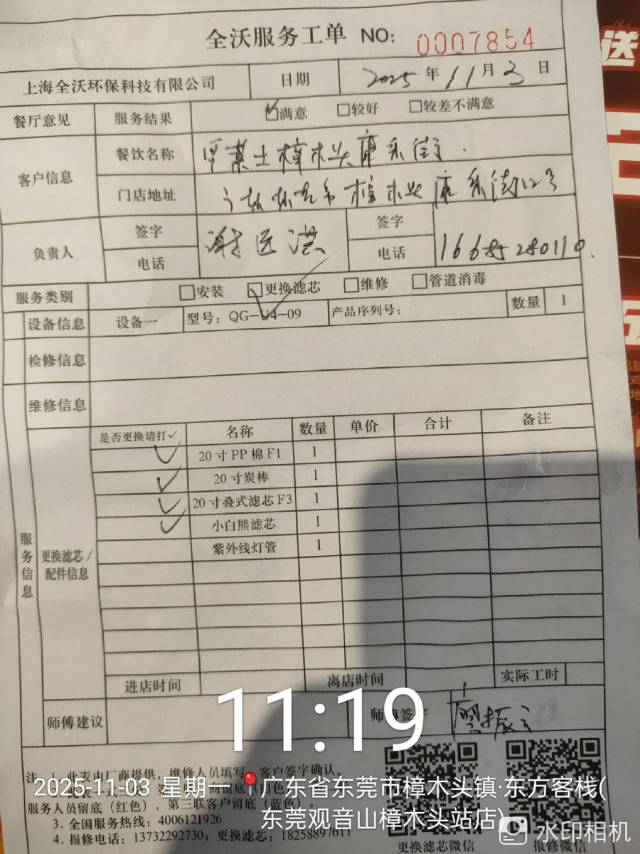 全沃服务工单 NO: 0007854
送
上海全沃环保科技有限公司 日期 2025年11月3日
餐厅意见 服务结果 ☑满意 □较好 □较差不满意
客户信息 餐饮名称 华莱士樟木头康乐街
门店地址 广东东莞市樟木头康乐街12号
负责人 签字 谢运洪 签字
电话 电话 16685280110
服务类别 □安装 ☑更换滤芯 □维修 □管道消毒
设备信息 设备一 型号: QG-U4-09 产品序列号: 数量 1
检修信息
维修信息
服务信息 更换滤芯/配件信息
是否更换请打✓ 名称 数量 单价 合计 备注
✓ 20寸PP棉F1 1
✓ 20寸炭棒 1
✓ 20寸叠式滤芯F3 1
✓ 小白熊滤芯 1
紫外线灯管 1
进店时间 离店时间 实际工时
师傅建议 师傅签字
11:19
注: 此表由厂商提供,维修人员填写,客户签字确认。
2025-11-03 星期一 广东省东莞市樟木头镇·东方客栈(
东莞观音山樟木头站店)
服务人员留底(红色),第三联客户留底(蓝色)。
3. 全国服务热线: 4006121926
4. 报修电话: 13732292730, 更换滤芯: 18258897611
更换滤芯微信 报修微信
水印相机